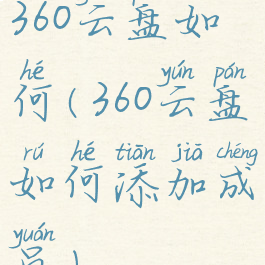 360云盘如
hé yún pán
何(360云盘
rú hé tiān jiā chéng
如何添加成
yuán
员)